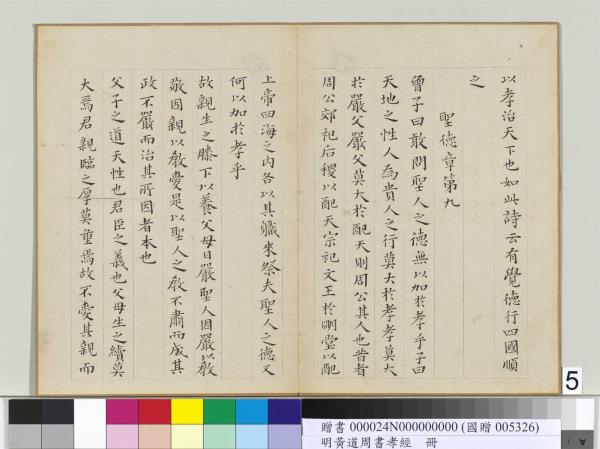 以孝治天下也如此詩云有覺德行四國順
之
聖德章第九
曾子曰敢問聖人之德無以加於孝乎子曰
天地之性人為貴人之行莫大於孝孝莫大
於嚴父嚴父莫大於配天則周公其人也昔者
周公郊祀后稷以配天宗祀文王於明堂以配
上帝四海之內各以其職來祭夫聖人之德又
何以加於孝乎
故親生之膝下以養父母日嚴聖人因嚴以教
敬因親以教愛是以聖人之教不肅而成其
政不嚴而治其所因者本也
父子之道天性也君臣之義也父母生之續莫
大焉君親臨之厚莫重焉故不愛其親而
5
贈書 000024N000000000 (國贈 005326)
明黃道周書孝經 冊